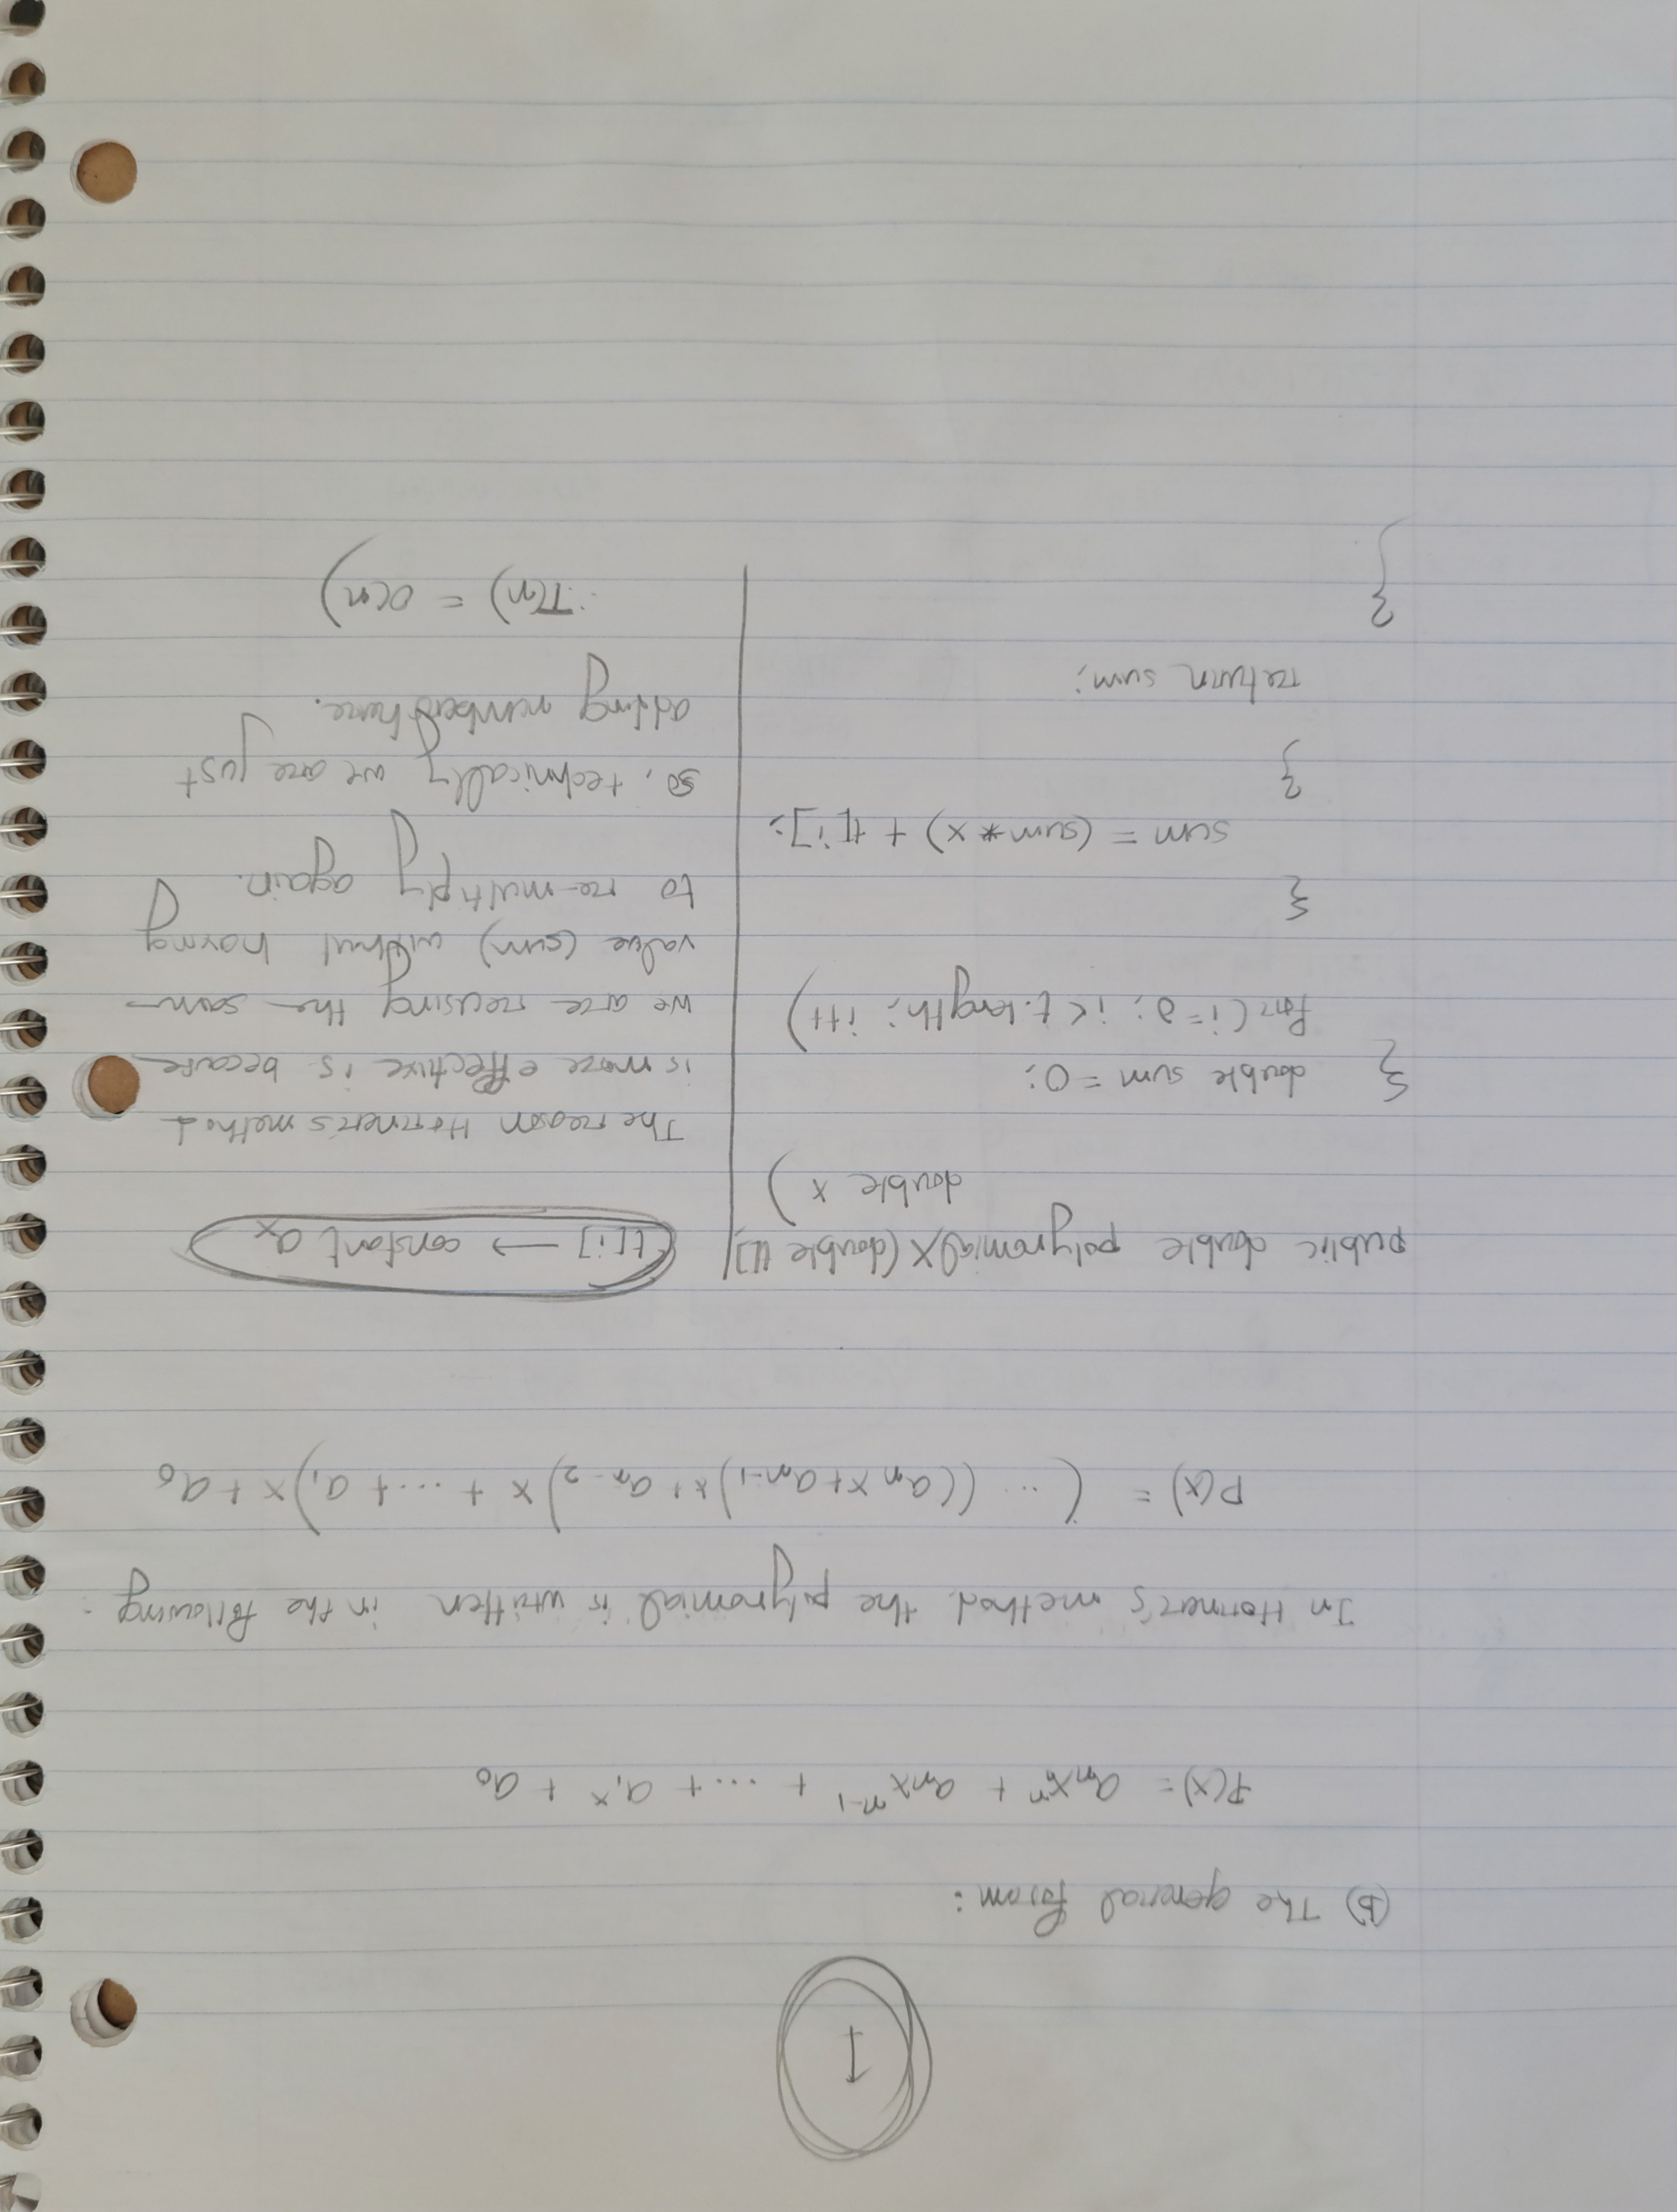 1
(b) The general form:
P(x) = aₙxⁿ + aₙxⁿ⁻¹ + ... + a₁ˣ + a₀
In Horner's method, the polynomial is written in the following:
P(x) = (... ((aₙx + aₙ₋₁)x + aₙ₋₂)x + ... + a₁)x + a₀
public double polynomialX (double t[],
double x)
{ double sum = 0;
for (i=0; i< t.length; i++)
{
sum = (sum * x) + t[i];
}
return sum;
}
t[i] → constant aₓ
The reason Horner's method
is more effective is because
we are reusing the same
value (sum) without having
to re-multiply again.
so, technically we are just
adding numbers here.
∴ T(n) = O(n)